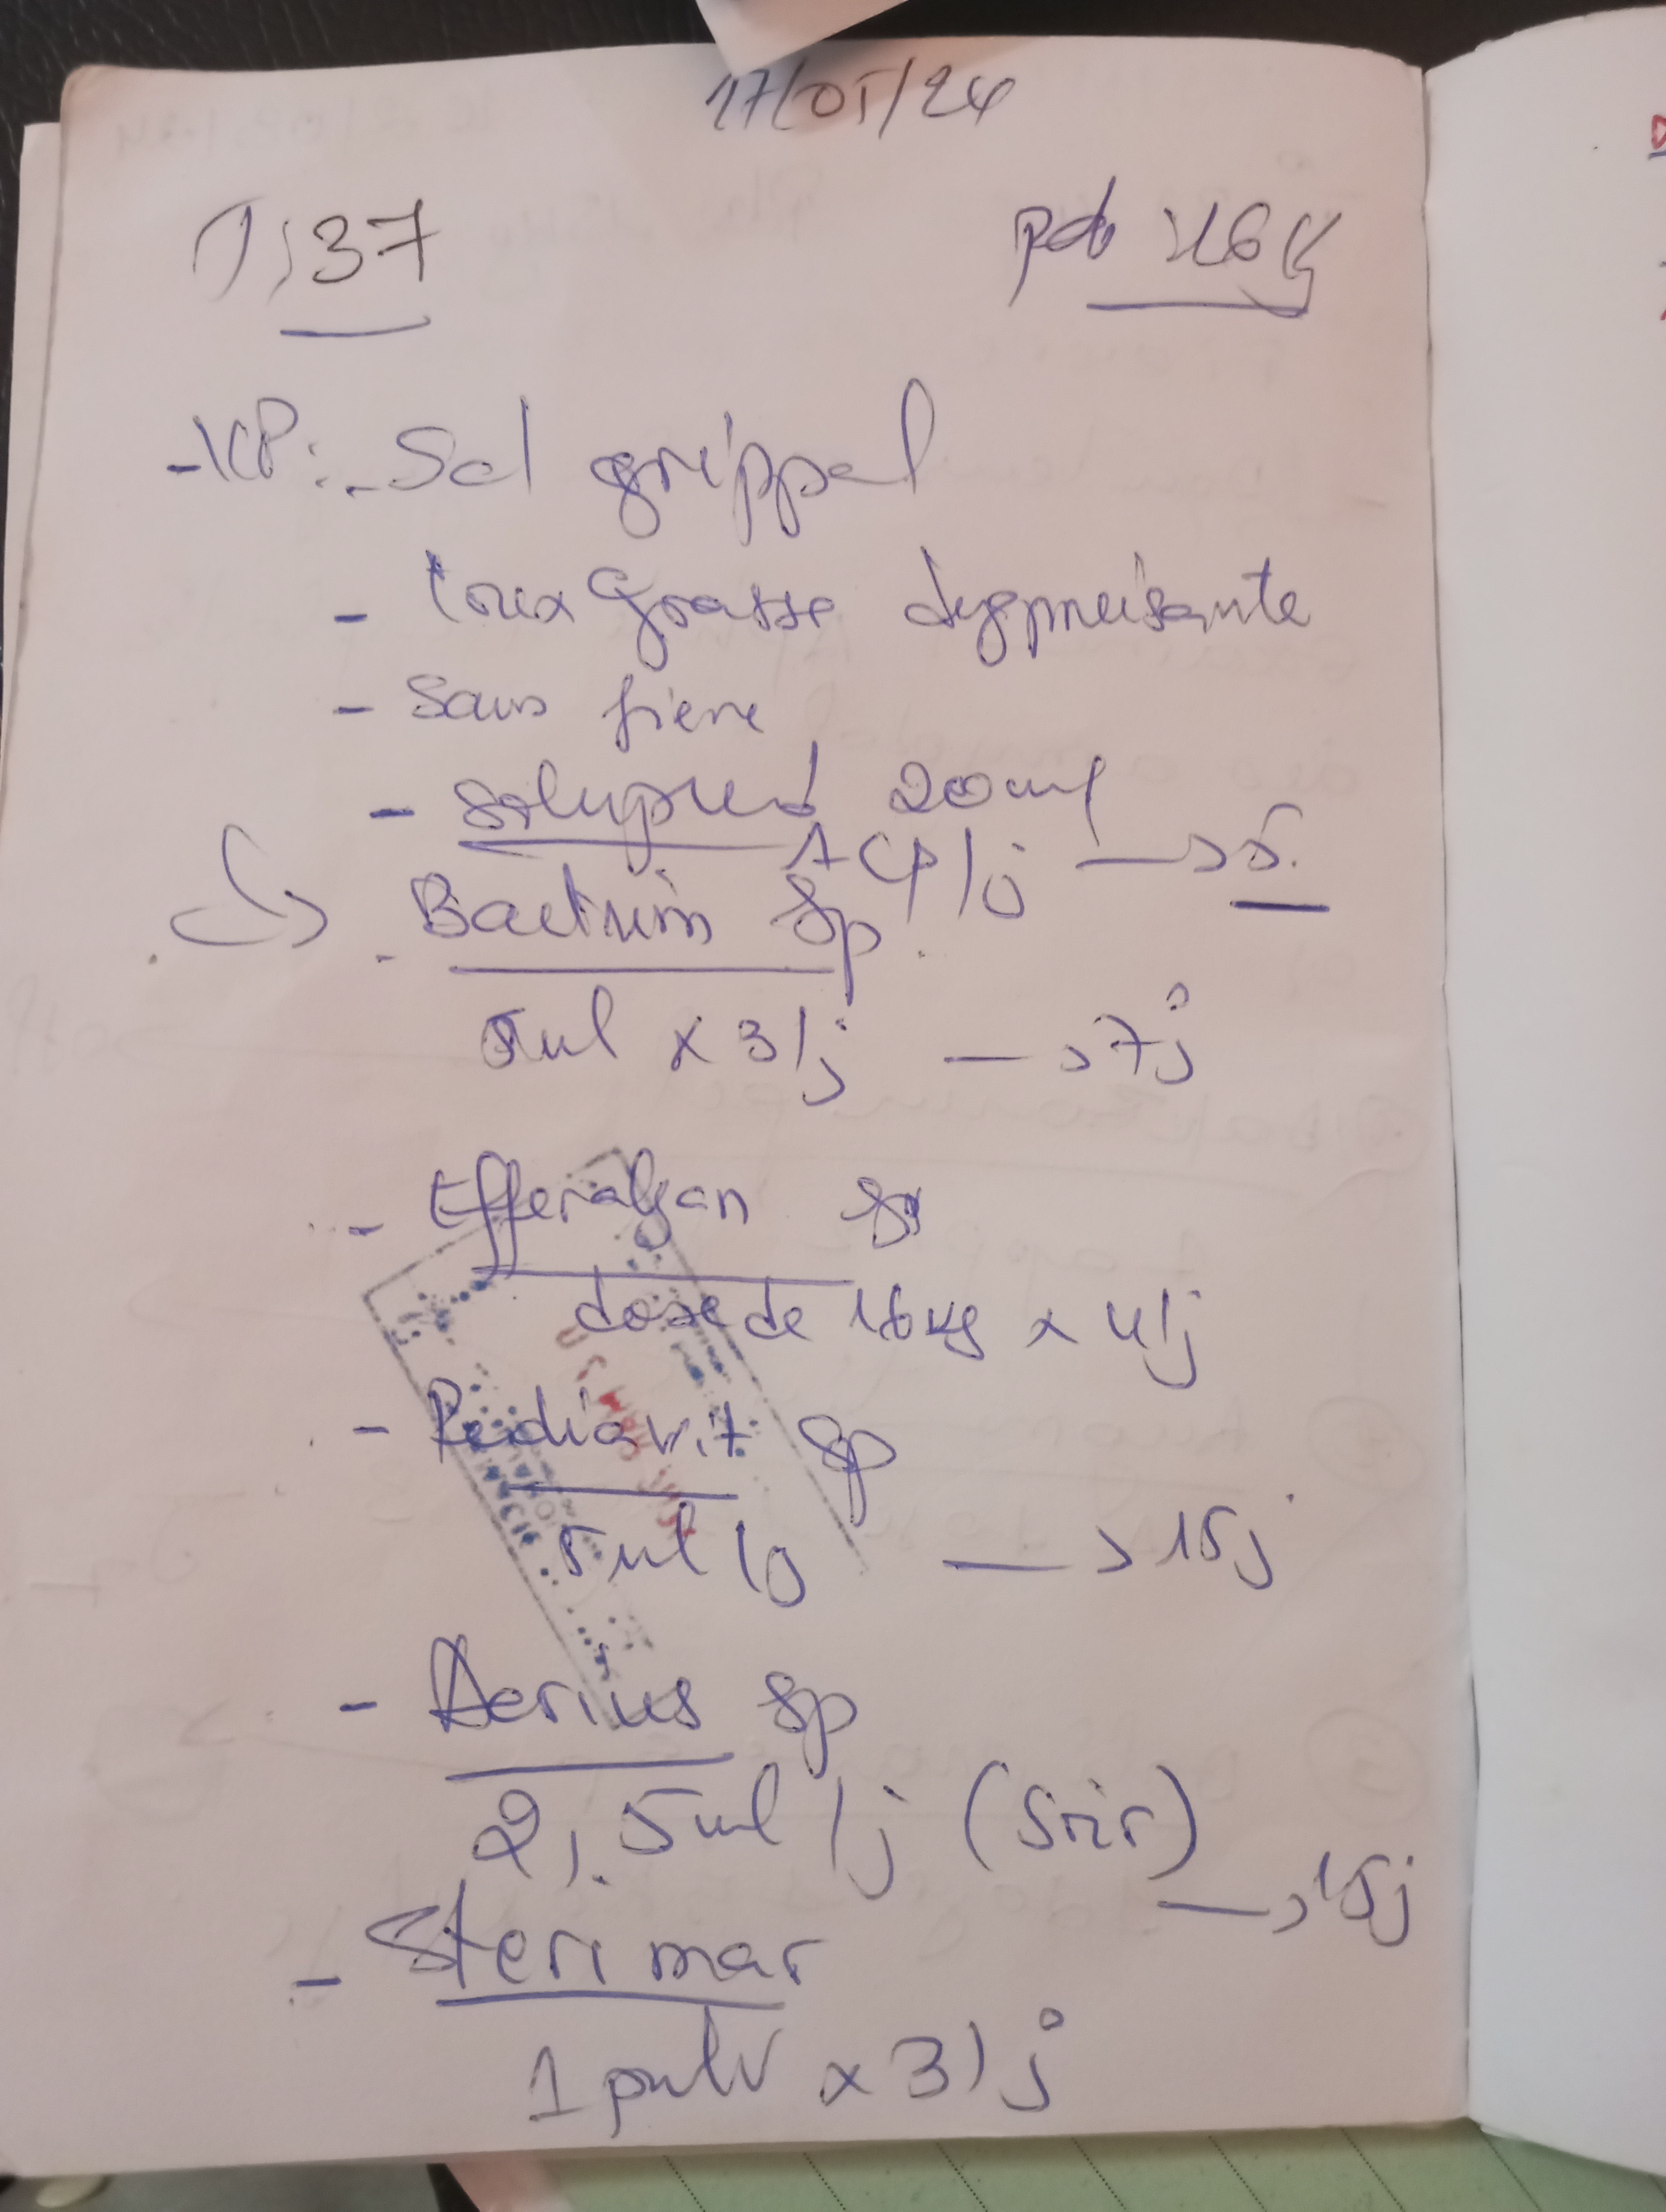 17/05/24
T: 37
pds 16 kg
- KP: - Sd grippal
- toux grasse dyspneisante
- Sans fièvre
- Solupred 20 mg
1 cp / j → 5 j
- Bactrim Sp
5 ml x 3 / j → 7 j
- Efferalgan
dose de 16 kg x 4 / j
- Pediavit Sp
5 ml / j → 15 j
- Aerius Sp
2,5 ml / j (Soir)
→ 15 j
- Sterimar
1 pulv x 3 / j